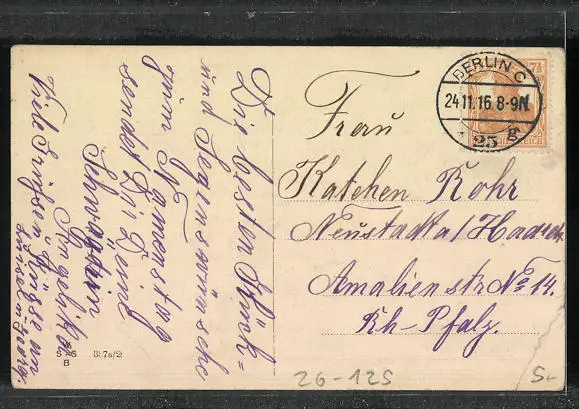 Die besten Glück=
und Segenswünsche
zum Namenstag
sendet Dir Deine
Schwägerin
Angelika
Viele Grüße an
Frau
Katchen Rohr
Neustadt a/Haardt
Amalienstr No 14.
Rh-Pfalz.
BERLIN C
24.11.16.8-9N
* 25 g
7½
REICH
S & S
B
3l7a/2
26-125
5.-